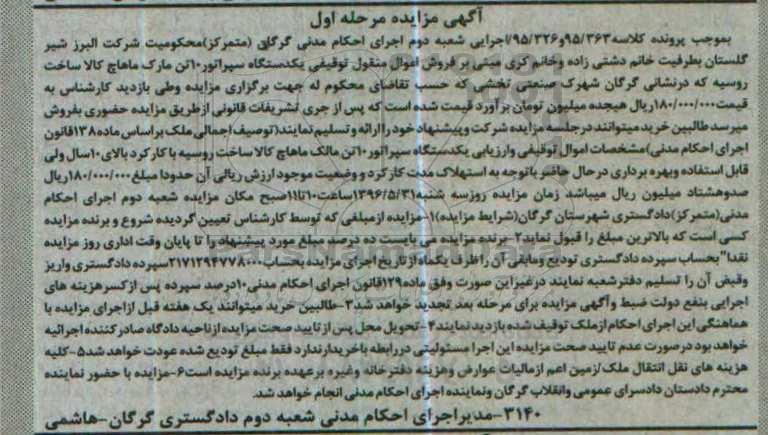 آگهی مزایده مرحله اول
بموجب پرونده کلاسه ۹۵/۳۶۳و۹۵/۳۲۶/اجرایی شعبه دوم اجرای احکام مدنی گرگان (متمرکز)محکومیت شرکت البرز شیر
گلستان بطرفیت خانم دشتی زاده وخانم کری مبنی بر فروش اموال منقول توقیفی یکدستگاه سپراتور۱۰تن مارک ماهاج کالا ساخت
روسیه که درنشانی گرگان شهرک صنعتی تخشی که حسب تقاضای محکوم له جهت برگزاری مزایده وطی بازدید کارشناس به
قیمت۱۸۰/۰۰۰/۰۰۰ریال هیجده میلیون تومان برآورد قیمت شده است که پس از جری تشریفات قانونی ازطریق مزایده حضوری بفروش
میرسد طالبین خرید میتوانند درجلسه مزایده شرکت وپیشنهاد خود را ارائه و تسلیم نمایند(توصیف اجمالی ملک براساس ماده۱۳۸قانون
اجرای احکام مدنی)مشخصات اموال توقیفی وارزیابی یکدستگاه سپراتور۱۰تن مالک ماهاج کالا ساخت روسیه با کارکرد بالای۱۰سال ولی
قابل استفاده وبهره برداری درحال حاضر باتوجه به استهلاک مدت کارکرد و وضعیت موجود ارزش ریالی آن حدودا مبلغ۱۸۰/۰۰۰/۰۰۰ریال
صدوهشتاد میلیون ریال میباشد زمان مزایده روزسه شنبه۱۳۹۶/۵/۳۱ساعت۱۰تا۱۱صبح مکان مزایده شعبه دوم اجرای احکام
مدنی(متمرکز)دادگستری شهرستان گرگان(شرایط مزایده)۱-مزایده ازمبلغی که توسط کارشناس تعیین گردیده شروع و برنده مزایده
کسی است که بالاترین مبلغ را قبول نماید۲-برنده مزایده می بایست ده درصد مبلغ مورد پیشنهاد را تا پایان وقت اداری روز مزایده
نقدا"بحساب سپرده دادگستری تودیع ومابقی آن را ظرف یکماه از تاریخ اجرای مزایده بحساب۲۱۷۱۲۹۴۷۷۸۰۰۰سپرده دادگستری واریز
وقبض آن را تسلیم دفترشعبه نمایند درغیراین صورت وفق ماده۱۲۹قانون اجرای احکام مدنی۱۰درصد سپرده پس ازکسرهزینه های
اجرایی بنفع دولت ضبط وآگهی مزایده برای مرحله بعد تجدید خواهد شد۳-طالبین خرید میتوانند یک هفته قبل ازاجرای مزایده با
هماهنگی این اجرای احکام ازملک توقیف شده بازدید نمایند۴-تحویل محل پس از تایید صحت مزایده ازناحیه دادگاه صادرکننده اجرائیه
خواهد بود درصورت عدم تایید صحت مزایده این اجرا مسئولیتی دررابطه باخریدارندارد فقط مبلغ تودیع شده عودت خواهد شد۵-کلیه
هزینه های نقل انتقال ملک/زمین اعم ازمالیات عوارض وهزینه دفترخانه وغیره برعهده برنده مزایده است۶-مزایده با حضور نماینده
محترم دادستان دادسرای عمومی وانقلاب گرگان ونماینده اجرای احکام مدنی انجام خواهد شد.
۳۱۴۰-مدیراجرای احکام مدنی شعبه دوم دادگستری گرگان-هاشمی